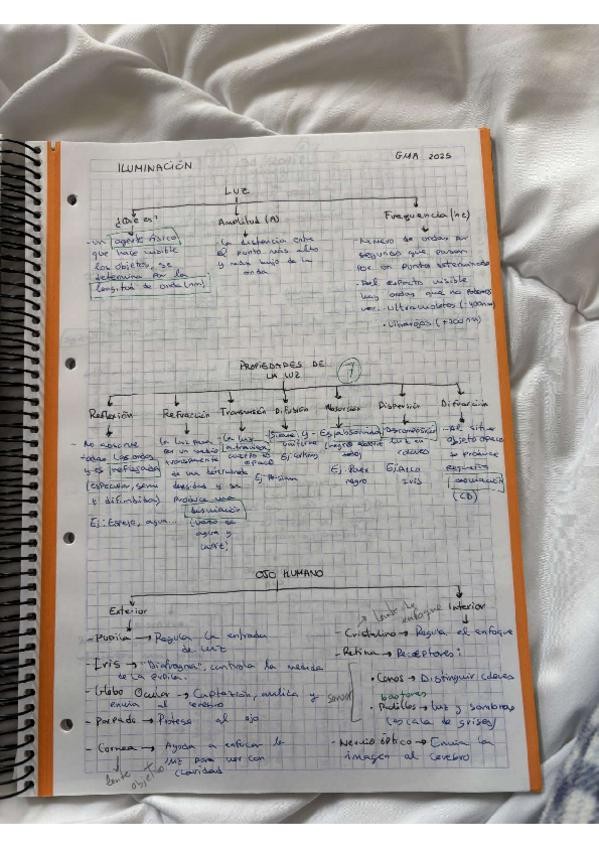 ILUMINACIÓN
GMA 2025
LUZ
¿Qué es?
- Un agente físico
que hace visible
los objetos, se
determina por la
longitud de onda (nm)
Amplitud (A)
- La distancia entre
el punto más alto
y más bajo de la
onda
Frecuencia (Hz)
- Número de ondas por
segundo que pasan
por un punto
- Del espectro visible
hay ondas que no podemos
ver: · Ultravioletas (-400nm)
· Infrarrojos (+700nm)
PROPIEDADES DE
LA LUZ
7
Reflexión
- No absorve
todas las ondas
y es reflejada
(especular, semi
Ej: Espejo, agua...
Refracción
La luz pasa
por un medio
transparente
de una
densidad y se
produce una
desviación
(vaso de
agua y
Transmisión
La luz
atraviesa
Ej: Prisma
Difusión
- Suave y
uniforme
Absorción
- Es absorbida
(negro absorbe
todo)
Ej: Pared
negro
Dispersión
Descomposición
luz en
colores
Ej: Arco
Iris
Difracción
- Al situar
objeto opaco
se produce
pequeña
desviación
(CD)
OJO HUMANO
Exterior
- Pupila → Regula la entrada
de luz
- Iris → "Diafragma", controla la medida
de la pupila.
- Globo Ocular → Captación, analiza y
envía al cerebro
- Parpado → Protege al ojo
- Cornea → Ayuda a enfocar la
luz para ver con
claridad
lente
objetivo
Interior
lente de
enfoque
- Cristalino → Regula el enfoque
- Retina → Receptores:
sensor
· Conos → Distinguir colores
bastones
· Palillos → Luz y sombras
(escala de grises)
- Nervio óptico → Envía la
imagen al cerebro